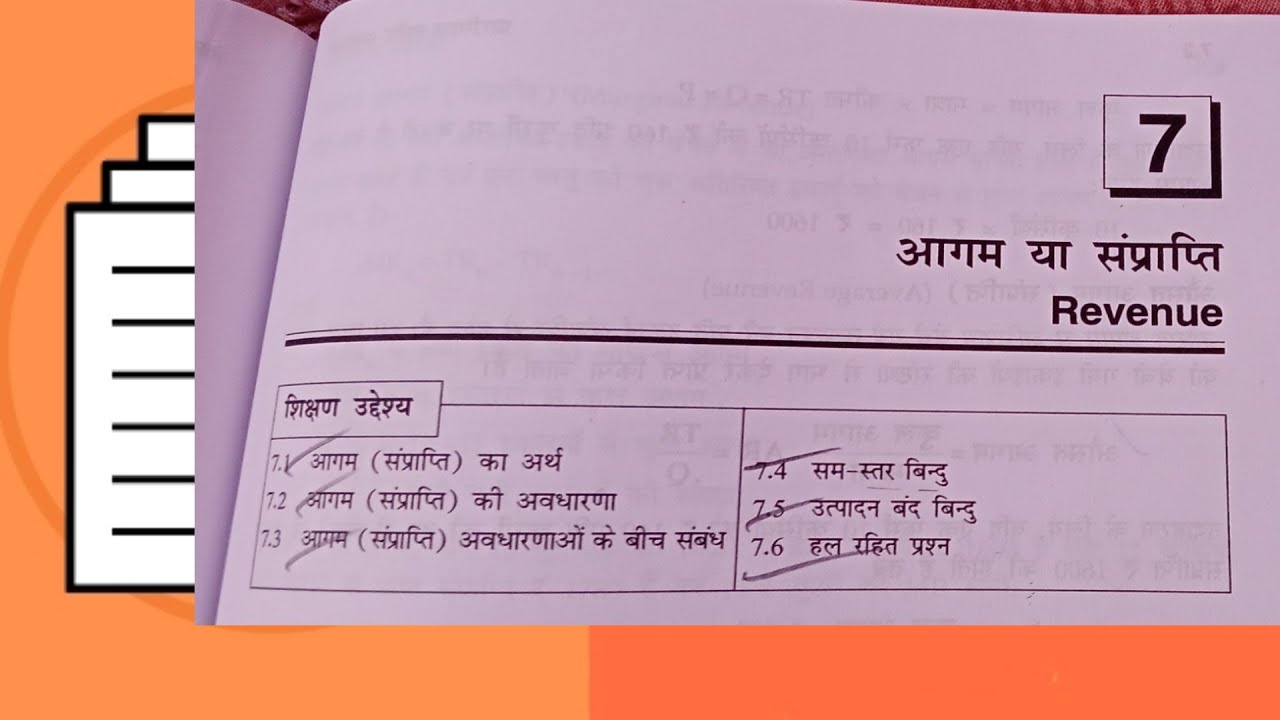 7
आगम या संप्राप्ति
Revenue
शिक्षण उद्देश्य
7.1 आगम (संप्राप्ति) का अर्थ
7.2 आगम (संप्राप्ति) की अवधारणा
7.3 आगम (संप्राप्ति) अवधारणाओं के बीच संबंध
7.4 सम-स्तर बिन्दु
7.5 उत्पादन बंद बिन्दु
7.6 हल रहित प्रश्न